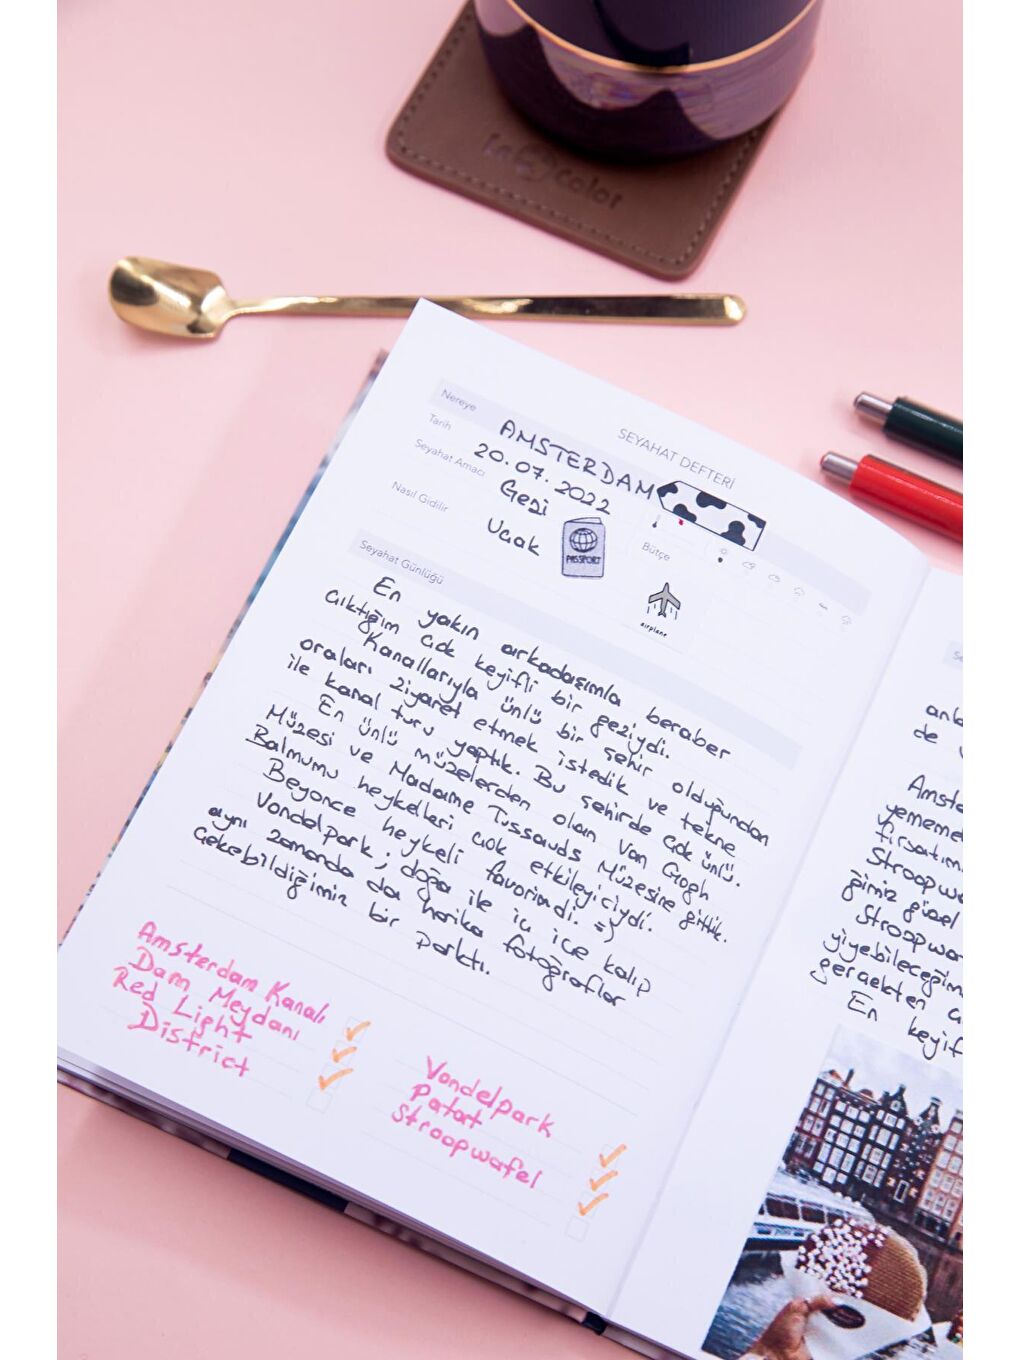 SEYAHAT DEFTERİ
Nereye AMSTERDAM
Tarih 20.07.2022
Seyahat Amacı Gezi
Nasıl Gidilir Uçak
PASSPORT
Bütçe
airplane
Seyahat Günlüğü
En yakın arkadaşımla beraber
çıktığım çok keyifli bir geziydi.
Kanallarıyla ünlü bir şehir olduğundan
oraları ziyaret etmek istedik ve tekne
ile kanal turu yaptık. Bu şehirde çok ünlü.
En ünlü müzelerden olan Van Gogh
Müzesi ve Madame Tussauds Müzesine gittik.
Balmumu heykelleri çok etkileyiciydi.
Beyonce heykeli favorimdi. =)
Vondelpark; doğa ile iç içe kalıp
aynı zamanda da harika fotoğraflar
çekebildiğimiz bir parktı.
Amsterdam Kanalı
Dam Meydanı
Red Light
District
Vondelpark
Patat
Stroopwafel
de
Amste
yememe
fırsatım
Stroopwa
ğimiz güzel
Stroopwa
yiyebileceğim
gerçekten
En keyif
color